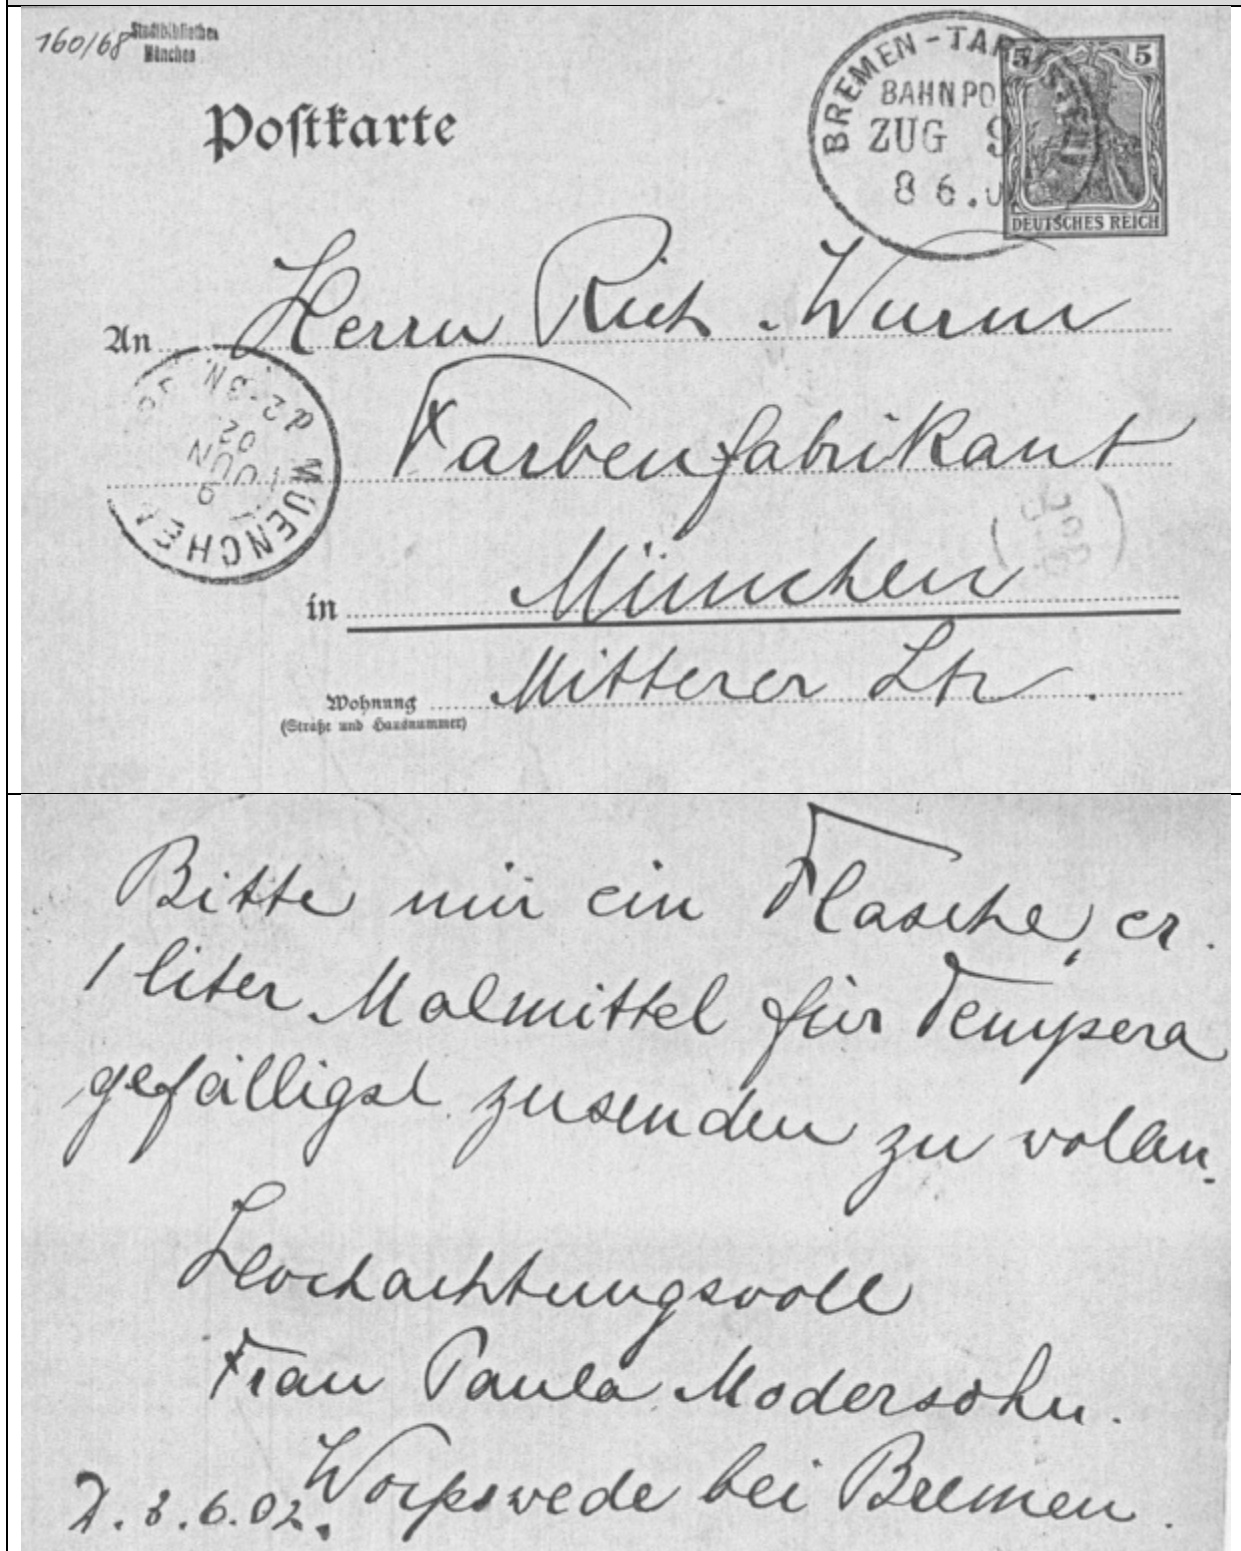 160/68 Stadtbibliothek
München
BREMEN-TAR
BAHNPO
ZUG 9
8 6.0
5 5
DEUTSCHES REICH
Postkarte
An Herrn Rich. Wurm
Farbenfabrikant
in München
Wohnung Mitterer Str.
(Straße und Hausnummer)
MUENCHEN
9 JUN
02
2-3N.
Bitte mir ein Flasche, cr.
1 liter Malmittel für Tempera
gefälligst zusenden zu wollen.
Hochachtungsvoll
Frau Paula Modersohn.
Worpswede bei Bremen.
D. 8.6.02.